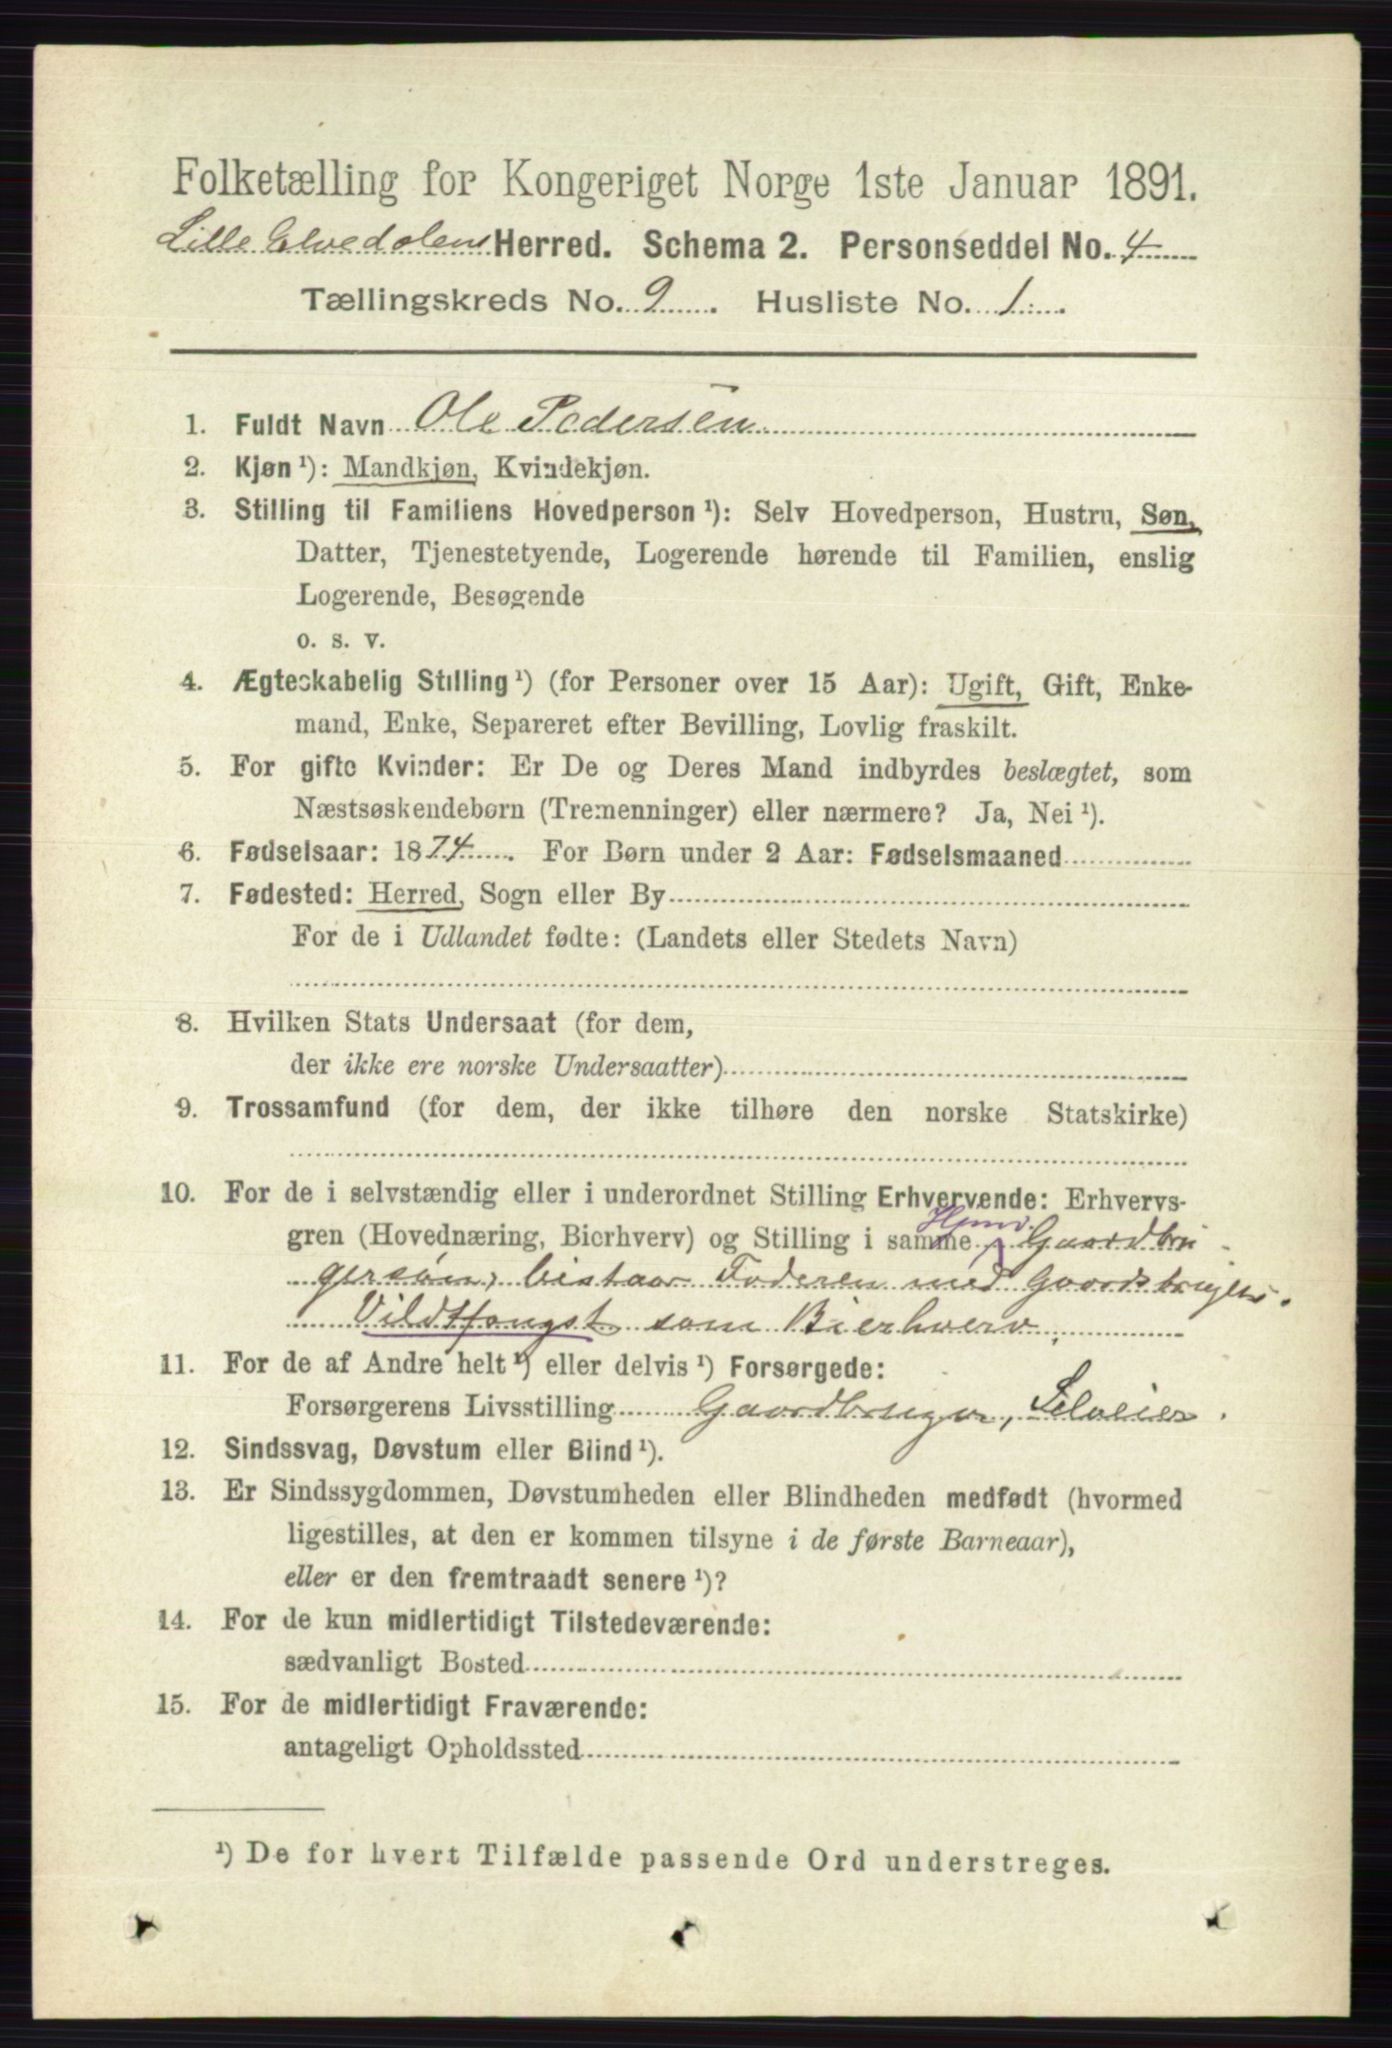 Folketælling for Kongeriget Norge 1ste Januar 1891.
Lille Elvedalens Herred. Schema 2. Personseddel No. 4
Tællingskreds No. 9. Husliste No. 1.
1. Fuldt Navn Ole Pedersen
2. Kjøn ¹): Mandkjøn, Kvindekjøn.
3. Stilling til Familiens Hovedperson ¹): Selv Hovedperson, Hustru, Søn,
Datter, Tjenestetyende, Logerende hørende til Familien, enslig
Logerende, Besøgende
o. s. v.
4. Ægteskabelig Stilling ¹) (for Personer over 15 Aar): Ugift, Gift, Enke-
mand, Enke, Separeret efter Bevilling, Lovlig fraskilt.
5. For gifte Kvinder: Er De og Deres Mand indbyrdes beslægtet, som
Næstsøskendebørn (Tremenninger) eller nærmere? Ja, Nei ¹).
6. Fødselsaar: 1874. For Børn under 2 Aar: Fødselsmaaned
7. Fødested: Herred, Sogn eller By
For de i Udlandet fødte: (Landets eller Stedets Navn)
8. Hvilken Stats Undersaat (for dem,
der ikke ere norske Undersaatter)
9. Trossamfund (for dem, der ikke tilhøre den norske Statskirke)
10. For de i selvstændig eller i underordnet Stilling Erhvervende: Erhvervs-
gren (Hovednæring, Bierhverv) og Stilling i samme Gaardbru-
gersøn, bistaar Faderen med Gaardsbruget.
Vildtfangst som Bierhverv.
11. For de af Andre helt ¹) eller delvis ¹) Forsørgede:
Forsørgerens Livsstilling Gaardbruger, Selveier.
12. Sindssvag, Døvstum eller Blind ¹).
13. Er Sindssygdommen, Døvstumheden eller Blindheden medfødt (hvormed
ligestilles, at den er kommen tilsyne i de første Barneaar),
eller er den fremtraadt senere ¹)?
14. For de kun midlertidigt Tilstedeværende:
sædvanligt Bosted
15. For de midlertidigt Fraværende:
antageligt Opholdssted
¹) De for hvert Tilfælde passende Ord understreges.